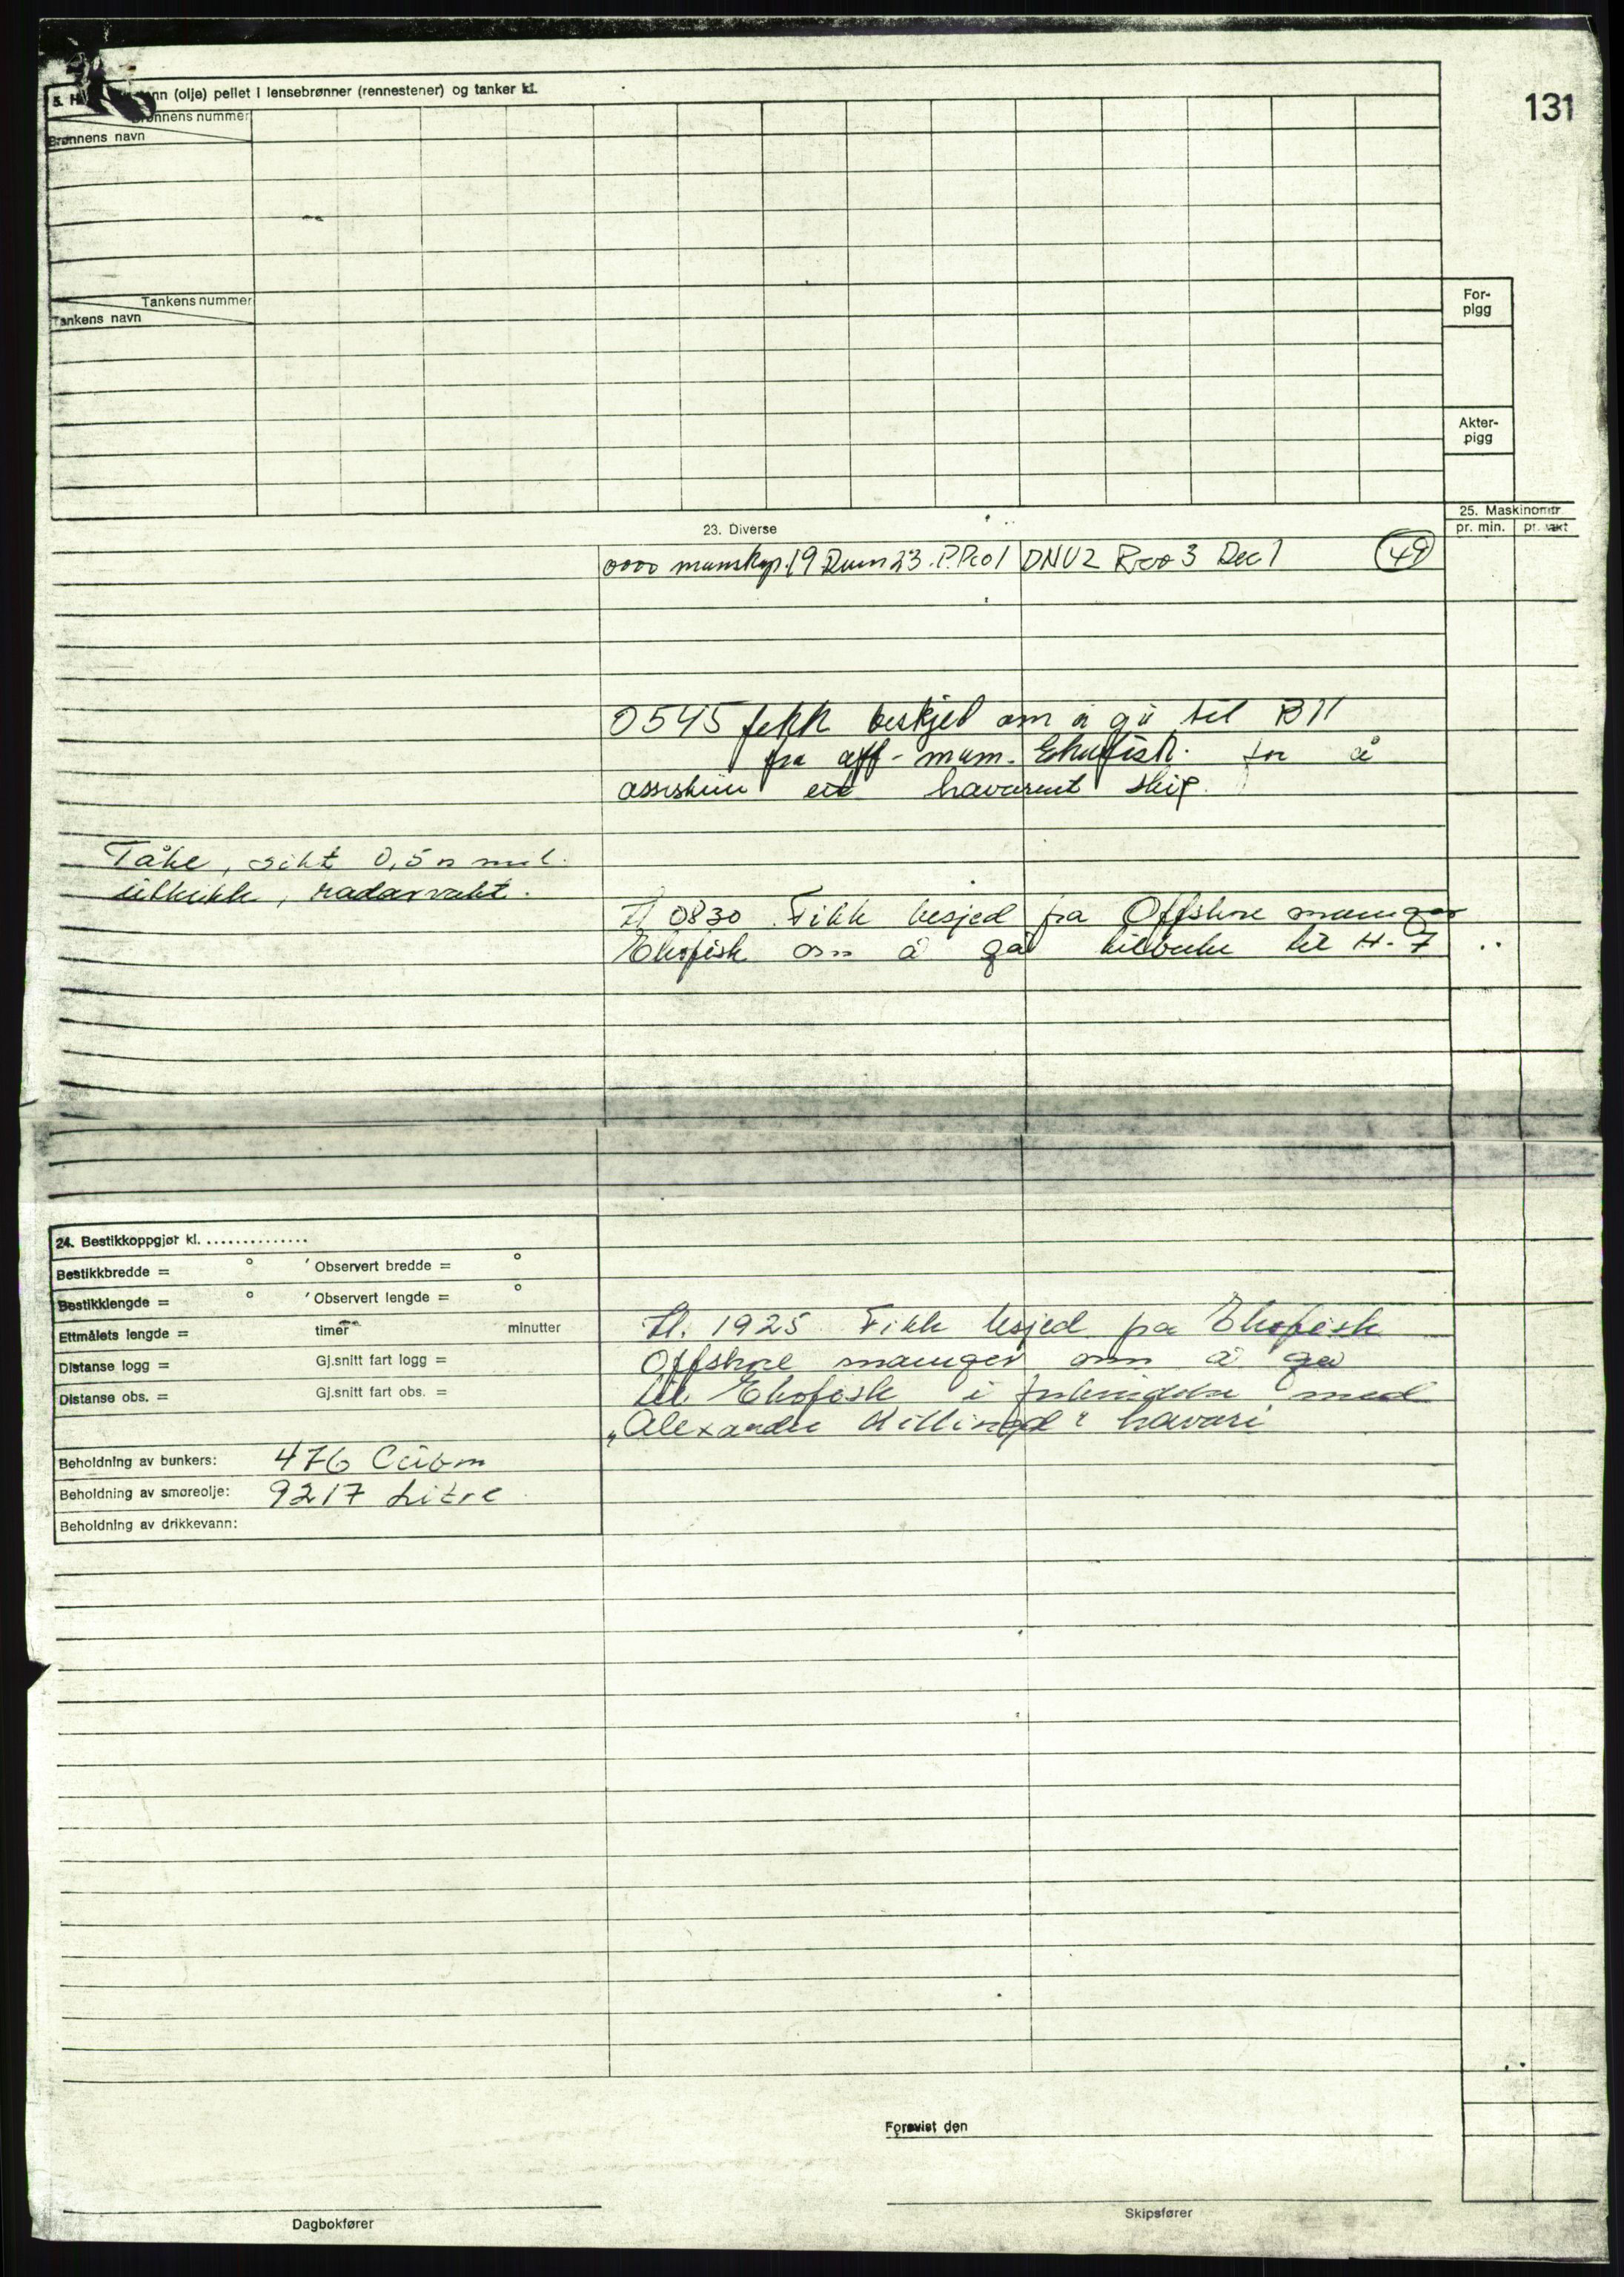 131
nn (olje) peilet i lensebrønner (rennestener) og tanker kl.
Brønnens nummer
Brønnens navn
Tankens nummer
Tankens navn
For-
pigg
Akter-
pigg
23. Diverse
25. Maskinomdr.
pr. min. pr. vakt
0000 manskap. 19 23 DNV2 3 1 49
0545 fekk beskjed om å gå til B11
fra off-man. Ekofisk. for å
assistere eit havarert skip.
Tåke, sikt 0,5 n mil.
utkikk, radarvakt.
Kl 0830 Fikk besjed fra Offshore manager
Ekofisk om å gå tilbake til H-7
24. Bestikkoppgjør kl. ..............
Bestikkbredde = ° ' Observert bredde = °
Bestikklengde = ° ' Observert lengde = °
Ettmålets lengde = timer minutter
Distanse logg = Gj.snitt fart logg =
Distanse obs. = Gj.snitt fart obs. =
Kl. 1925 Fikk besjed fra Ekofisk
Offshore manager om å gå
til Ekofisk i forbindelse med
„Alexander Killingd" havari
Beholdning av bunkers: 476 Cubm
Beholdning av smøreolje: 9217 Litre
Beholdning av drikkevann:
Forevist den
Dagbokfører
Skipsfører